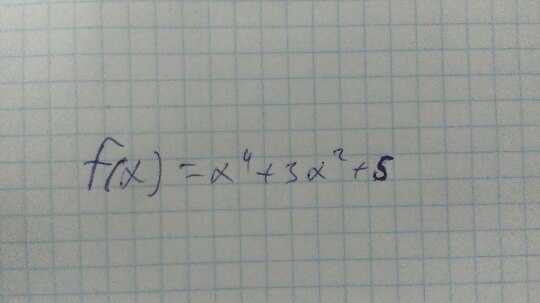 f(x) = x⁴ + 3x² + 5